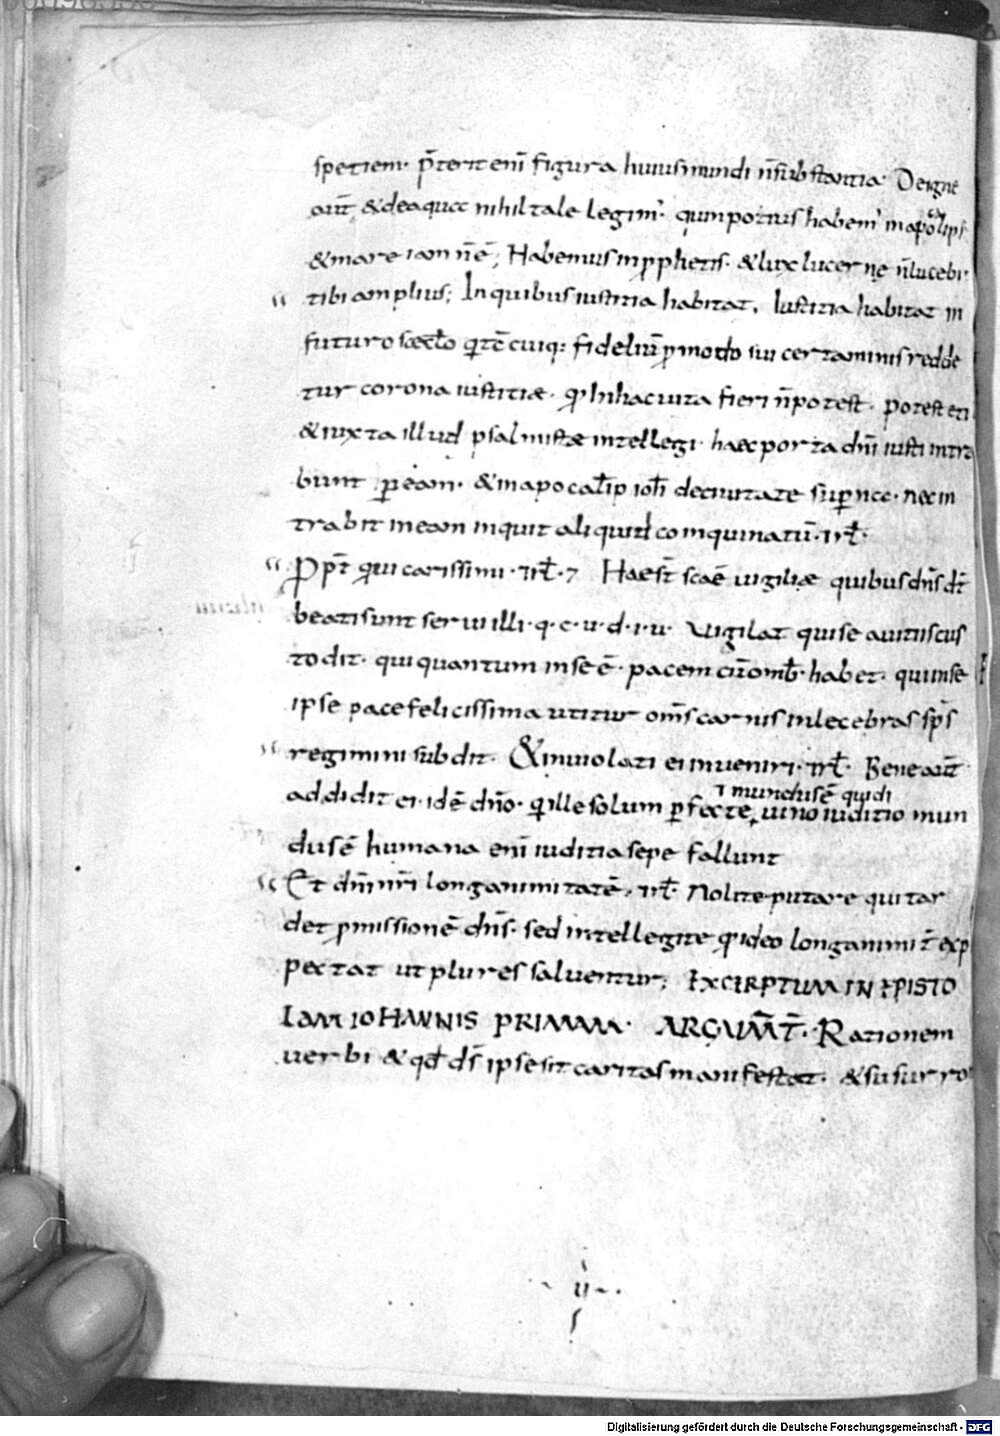 spetiem· p̄terit eni̅ figura huius mundi n̅ substantia· De igne
aut̅ & de aqua nihil tale legim᾽· quin potius habem᾽ in apocalips
& mare iam n̅ e̅; Habemus in prophetis· & lux lucerne n̅ lucebi
tibi amplius; In quibus iustitia habitat. Iustitia habitat in
futuro sc̅lo cuiq: fideliu̅ p modo sui certaminis redde
tur corona iustitiae· In hac uita fieri n̅ potest· potest eti
& iuxta illud psalmistae intellegi· haec porta dn̅i iusti intra
bunt p eam· & in apocalip ioh̅ de ciuitate sup̅na· nec in
trabit in eam inquit aliquid coinquinatu̅· rl̅·
Ppt̅ carissimi· rl̅· 7 Hae st̅ scae̅ uigiliae quibus dn̅s dt̅
beati sunt serui illi· q· c· u· d· i· u· Vigilat qui se a uitiis cus
todit· qui quantum in se e̅· pacem cu̅ omb̅· habet· qui in se
ipse pace felicissima utitur om̅s carnis inlecebras sp̅s
regimini subdit· & inuiolati ei inueniri· rl̅· Bene aut̅
addidit ei· ide̅ dn̅o· q ille solum pfecte
mundus e̅ qui di
uino iuditio mun
dus e̅ humana eni̅ iuditia sepe fallunt
Et dn̅i nr̅i longanimitate̅· rl̅· Nolite putare qui tar
det pmissione̅ dn̅s· sed intellegite ideo longanimit̅ exp
pectat ut plures saluentur; EXCIRPTUM IN EPISTO
LAM IOHANNIS PRIMAM· ARGUM̅T̅·· Rationem
uerbi & qd̅ ds̅ ipse sit caritas manifestat· & susurro
ii
Digitalisierung gefördert durch die Deutsche Forschungsgemeinschaft - DFG